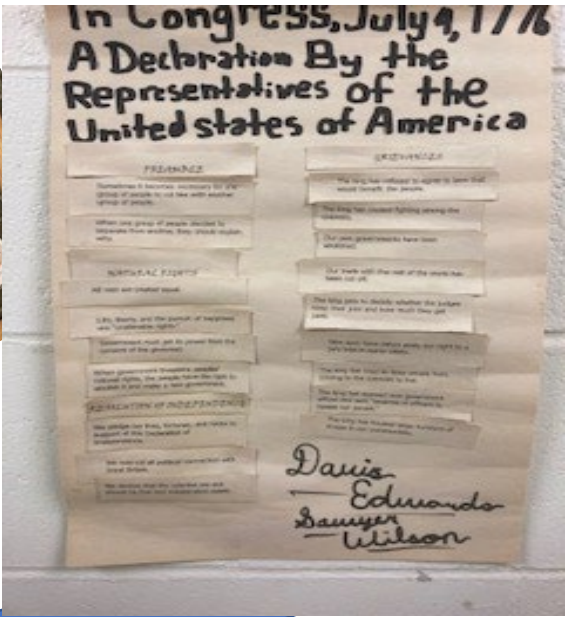 In Congress, July 4, 1776
A Declaration By the
Representatives of the
United states of America
PREAMBLE
Sometimes it becomes necessary for one
group of people to cut ties with another
group of people.
When one group of people decides to
separate from another, they should explain
why.
NATURAL RIGHTS
All men are created equal.
Life, liberty, and the pursuit of happiness
are "unalienable rights".
Government must get its power from the
consent of the governed.
When government threatens peoples'
natural rights, the people have the right to
abolish it and make a new government.
DECLARATION OF INDEPENDENCE
We pledge our lives, fortunes, and honor to
support of the Declaration of
Independence.
We now cut all political connection with
Great Britain.
We declare that the colonies are and
should be free and independent states.
GRIEVANCES
The king has refused to agree to laws that
would benefit the people.
The king has caused fighting among the
Our own governments have been
Our trade with the rest of the world has
been cut off.
The king gets to decide whether the judges
keep their jobs and how much they get
paid.
jury trial in
The king has
The king has
The king has
Davis
Edwards
Sawyer
Wilson